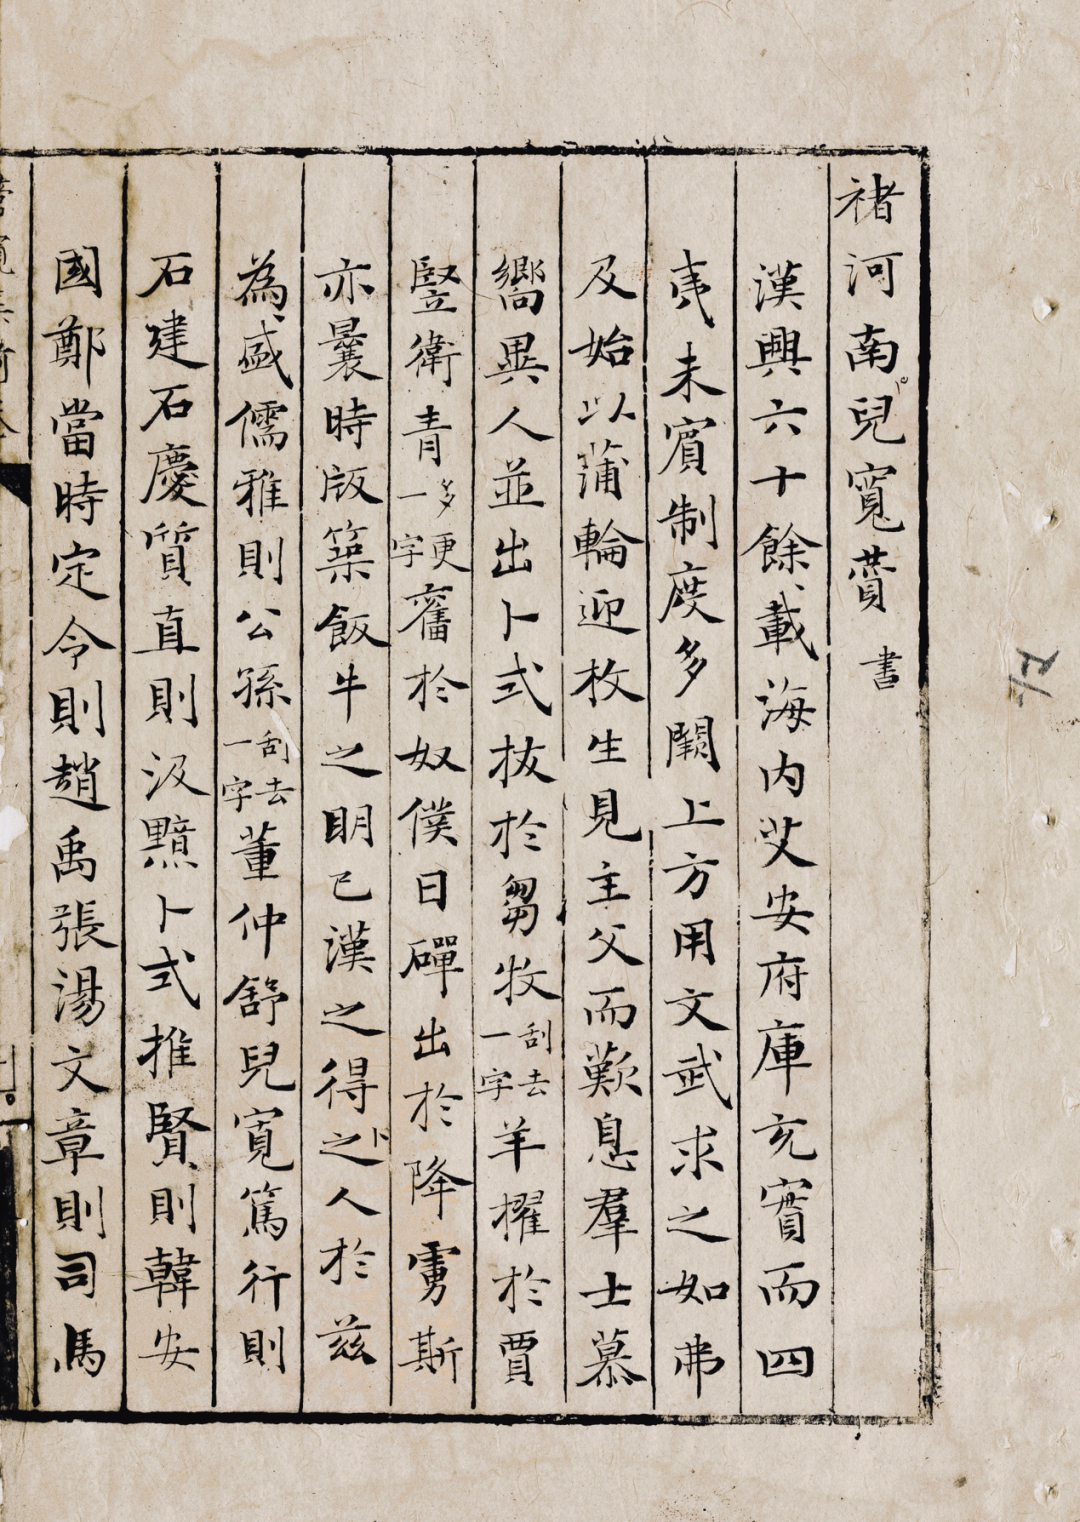 褚河南兒寬贊 書
漢興六十餘載海內艾安府庫充實而四
夷未賓制度多闕上方用文武求之如弗
及始以蒲輪迎枚生見主父而歎息羣士慕
嚮異人並出卜式拔於芻牧刮去一字羊擢於賈
豎衛青多更一字奮於奴僕日磾出於降虜斯
亦曩時版築飯牛之朙已漢之得之卜人於茲
為盛儒雅則公孫刮去一字董仲舒兒寬篤行則
石建石慶質直則汲黯卜式推賢則韓安
國鄭當時定令則趙禹張湯文章則司馬